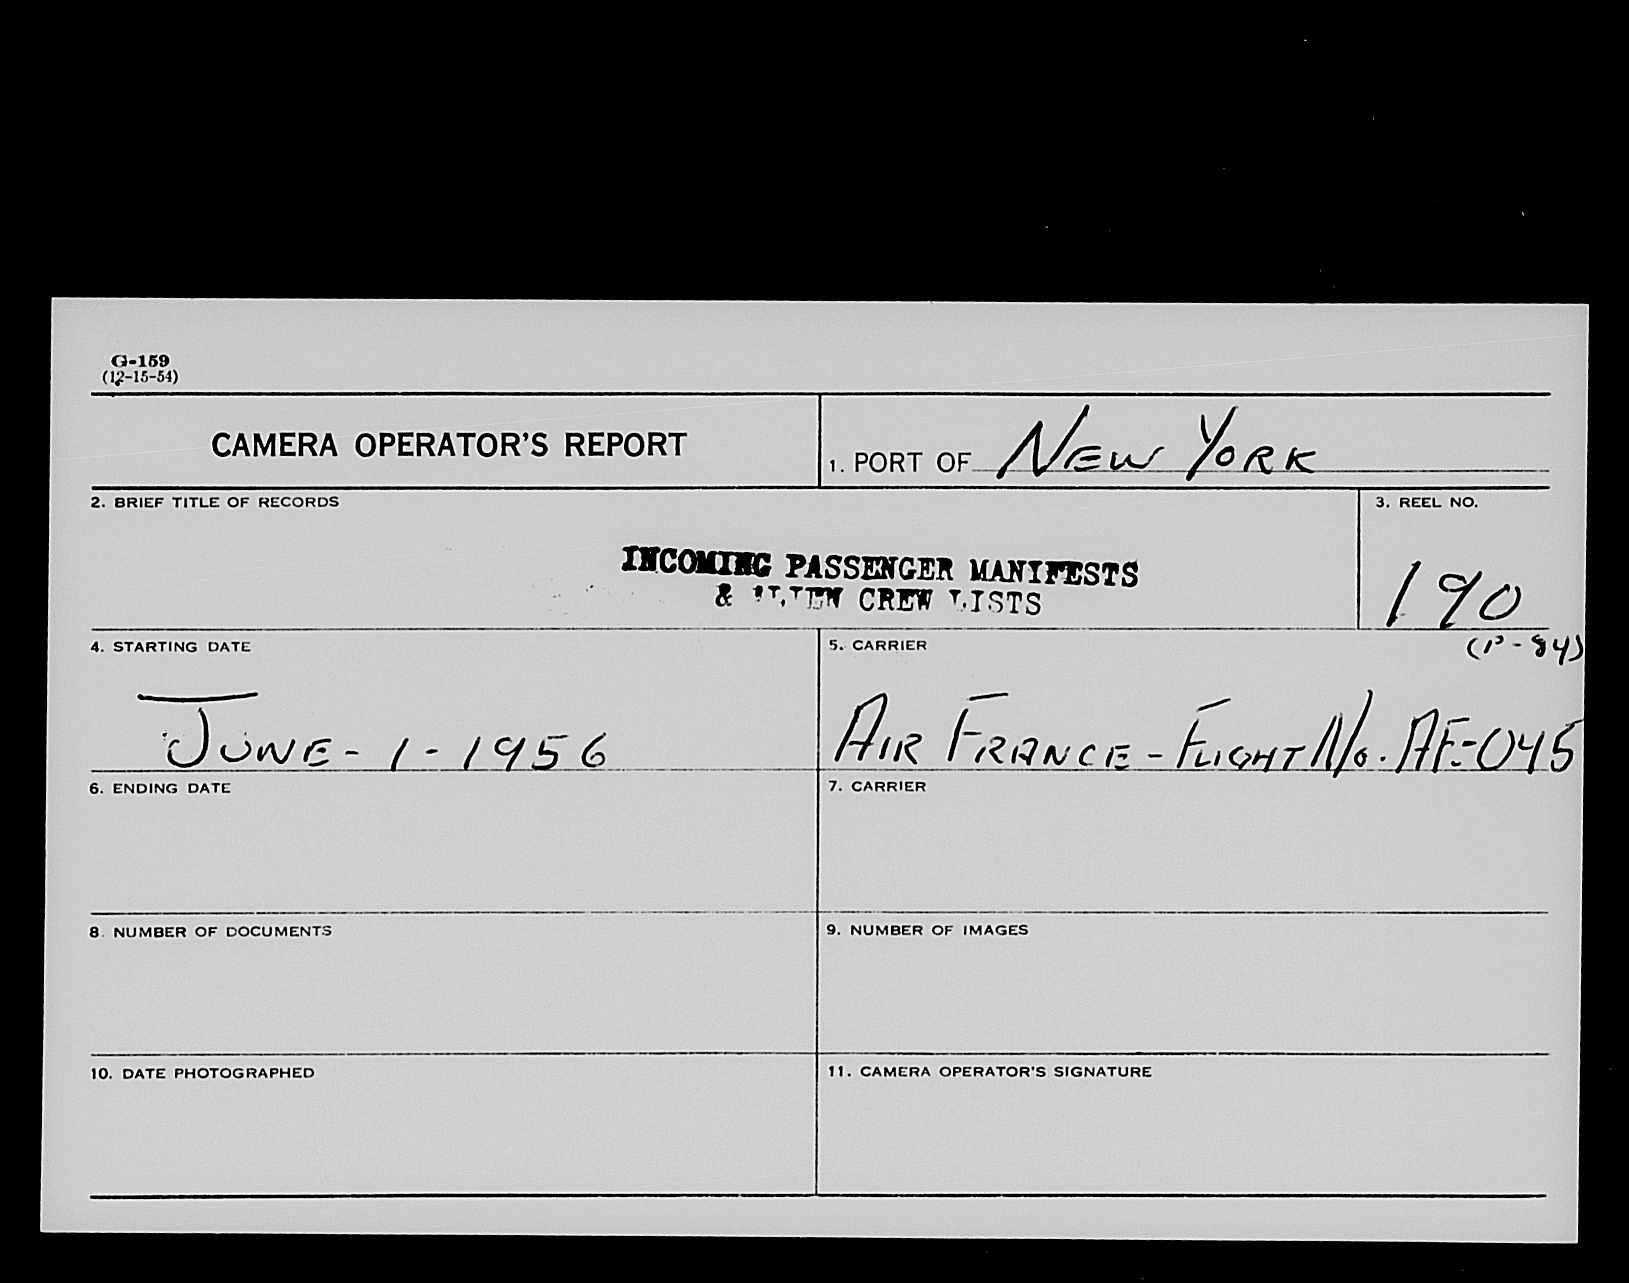 G-159
(12-15-54)
CAMERA OPERATOR'S REPORT
1. PORT OF NEW YORK
2. BRIEF TITLE OF RECORDS
3. REEL NO.
INCOMING PASSENGER MANIFESTS
& ALIEN CREW LISTS
190
(P-84)
4. STARTING DATE
5. CARRIER
JUNE-1-1956
AIR FRANCE-FLIGHT No. AF-045
6. ENDING DATE
7. CARRIER
8. NUMBER OF DOCUMENTS
9. NUMBER OF IMAGES
10. DATE PHOTOGRAPHED
11. CAMERA OPERATOR'S SIGNATURE